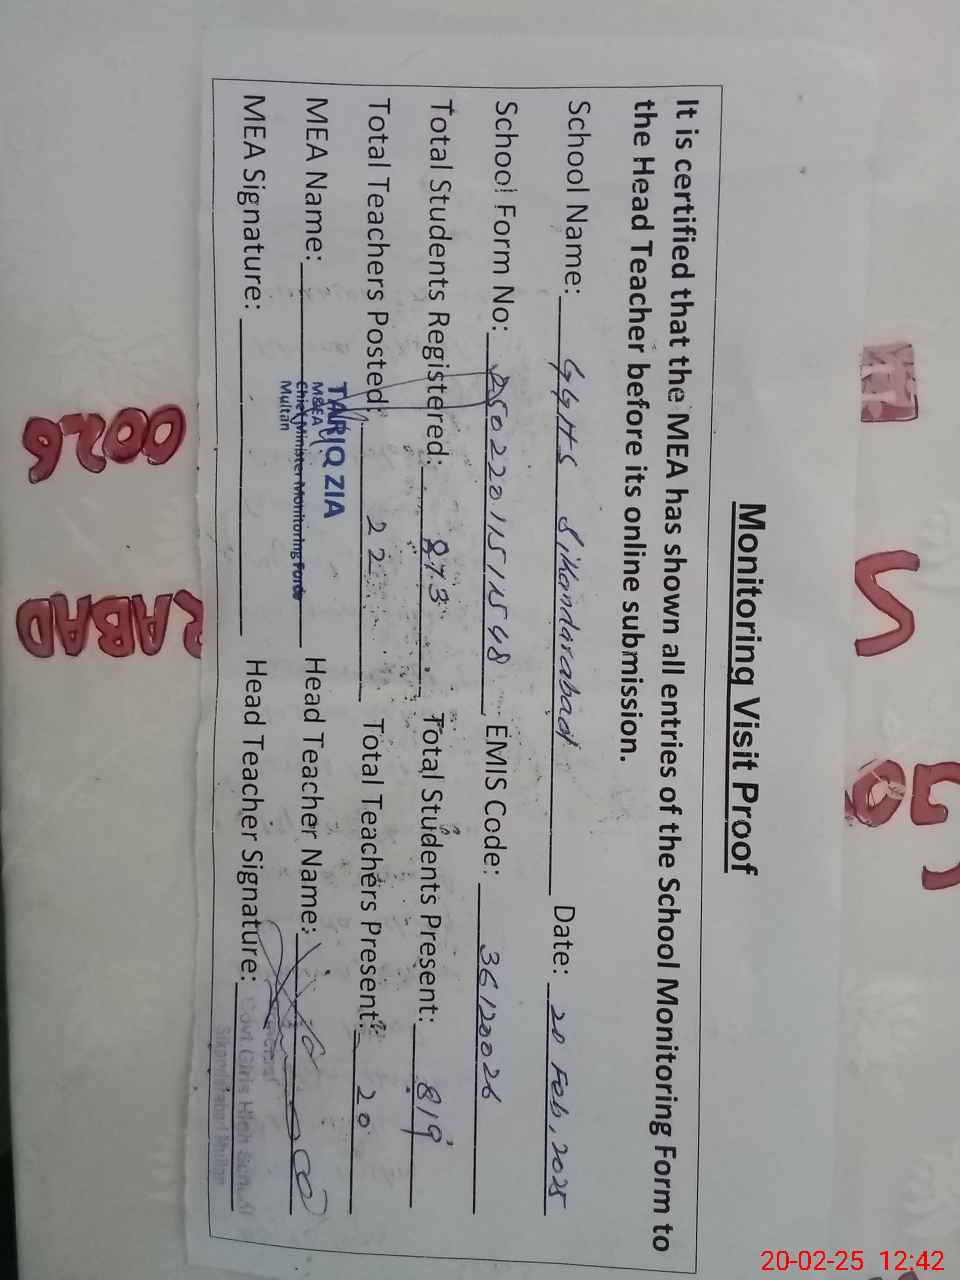 Monitoring Visit Proof
It is certified that the MEA has shown all entries of the School Monitoring Form to
the Head Teacher before its online submission.
School Name: GGHS Sikandarabad Date: 20 Feb, 2025
School Form No: EMIS Code: 36120026
Total Students Registered: 873 Total Students Present: 819
Total Teachers Posted: 22 Total Teachers Present: 20
MEA Name: Head Teacher Name:
TARIQ ZIA
M&EA
Chief Minister Monitoring Force
Multan
MEA Signature: Head Teacher Signature:
Govt. Girls High School
Sikandarabad Multan
0026
RABAD
20-02-25 12:42